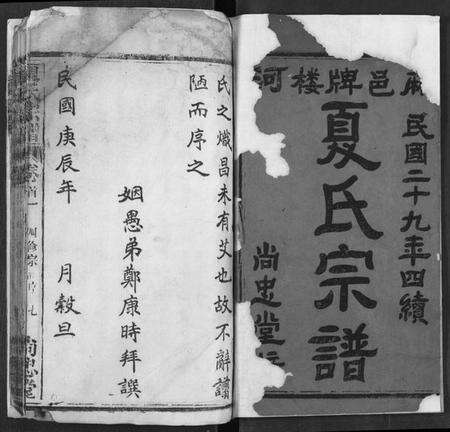 麻邑牌楼河
民國二十九年四續
夏氏宗譜
尚忠堂
氏之熾昌未有艾也故不辭譾
陋而序之
姻愚弟鄭康時拜譔
民國庚辰年 月穀旦
尚忠堂